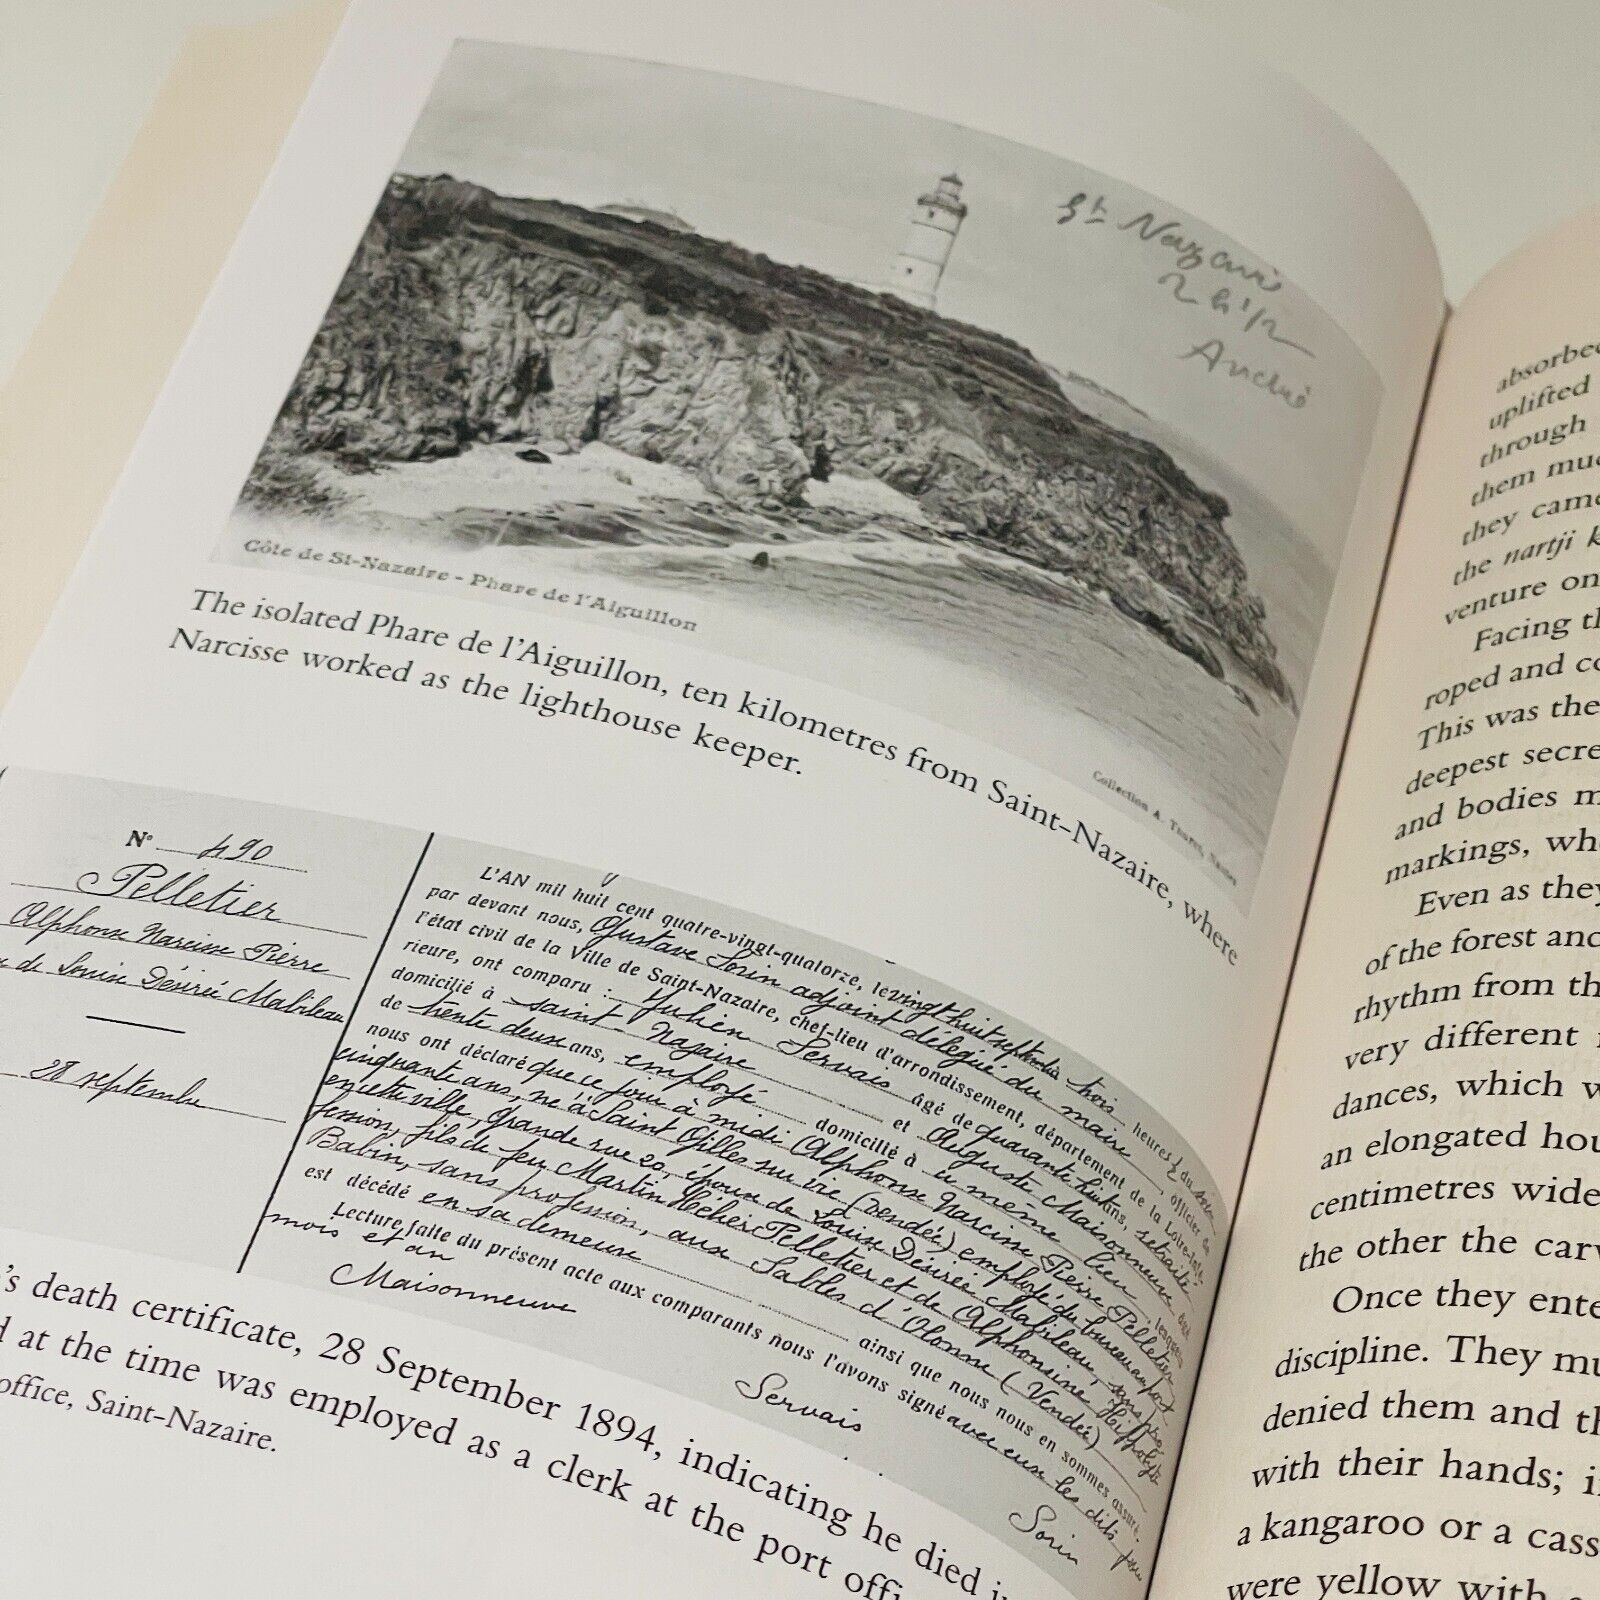 St Nazaire
Côte de St-Nazaire - Phare de l'Aiguillon
Collection A.
The isolated Phare de l'Aiguillon, ten kilometres from Saint-Nazaire, where
Narcisse worked as the lighthouse keeper.
N° 490
Pelletier
Alphonse Narcisse Pierre
de Louise Désirée Mabileau
28 septembre
L'AN mil huit cent quatre-vingt-quatorze, le vingt huit septembre trois heures ½ du soir
par devant nous, Gustave Sorin adjoint délégué du maire, officier de
l'état civil de la Ville de Saint-Nazaire, chef-lieu d'arrondissement, département de la Loire-Infé-
rieure, ont comparu : Julien Servais âgé de quarante huit ans, retraité
domicilié à Saint-Nazaire et Auguste Maisonneuve âgé
de trente deux ans, employé domicilié à même lieu, lesquels
nous ont déclaré que ce jour à midi Alphonse Narcisse Pierre Pelletier
cinquante ans, né à Saint Gilles sur vie (Vendée) employé du bureau au port
en cette ville, grande rue 20, époux de Louise Désirée Mabileau, sans pro-
fession, fils de feu Martin Pelletier et de Alphonsine Hippolyte
Babin, sans profession, aux Sables d'Olonne (Vendée)
est décédé en sa demeure ainsi que nous nous en sommes assuré.
Lecture faite du présent acte aux comparants nous l'avons signé avec eux les dits jour
mois et an
Maisonneuve
Servais
Sorin
's death certificate, 28 September 1894, indicating he died
at the time was employed as a clerk at the port
office, Saint-Nazaire.
absorbed
uplifted
through
them
they came
the nartji
venture on
Facing
roped and
This was the
deepest
and bodies
markings,
Even as they
of the forest and
rhythm from
very different
dances, which
an elongated
centimetres wide
the other the
Once they
discipline. They
denied them and
with their hands;
a kangaroo or a
were yellow with